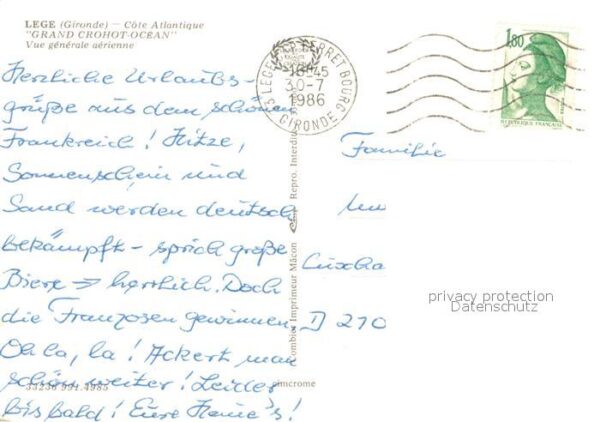 LEGE (Gironde) — Côte Atlantique
"GRAND CROHOT-OCÉAN"
Vue générale aérienne
33 LEGE CAP FERRET BOURG
18H45
30-7
1986
GIRONDE
1,80
RÉPUBLIQUE FRANÇAISE
Herzliche Urlaubs-
grüße aus dem schönen
Frankreich! Hitze,
Sonnenschein und
Sand werden deutsch
bekämpft – sprich große
Biere => herrlich. Doch
die Franzosen gewinnen.
Oh la, la! Ackert man
schön weiter! Leider
bis bald! Eure Heine's!
Familie
Cuxha
D 290
Combier Imprimeur Mâcon
Repro. Interdite
33236 991.4985
cimcrome
privacy protection
Datenschutz